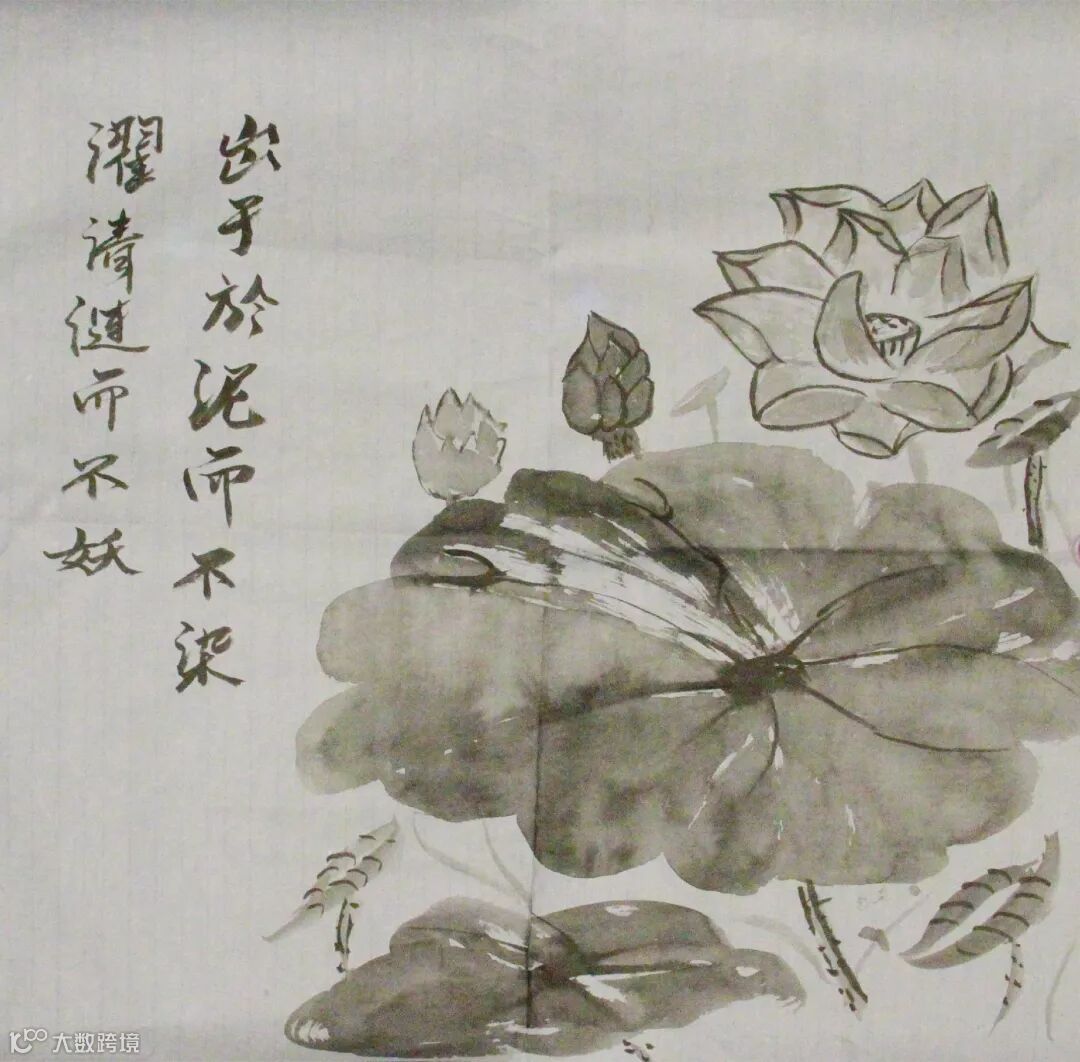 出于於泥而不染
濯清涟而不妖
大数跨境